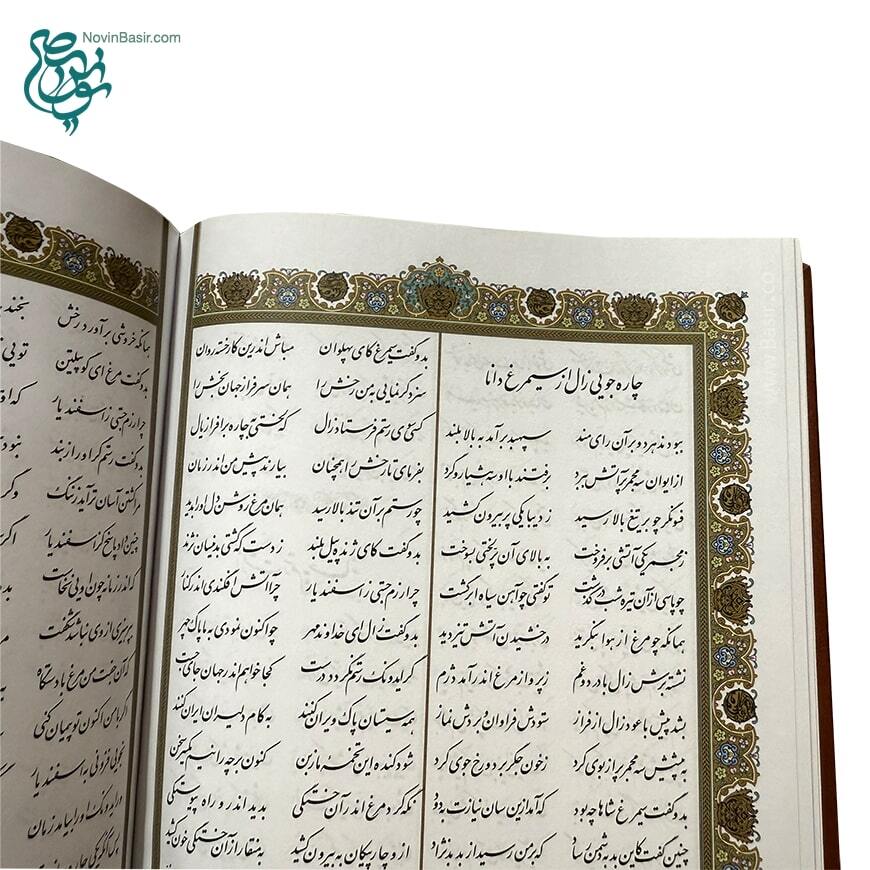 NovinBasir.com
چاره جویی زال از سیمرغ دانا
ببودند هر دو بر آن رای مند سپهبد برآمد به بالا بلند
از ایوان سه مجمر پر آتش ببرد برفتند با او سه هشیار و گرد
فسونگر چو بر تیغ بالا رسید ز دیبا یکی پر بیرون کشید
ز مجمر یکی آتشی برفروخت به بالای آن پر لختی بسوخت
چو پاسی از آن تیره شب درگذشت تو گفتی چو آهن سیاه ابر گشت
همانگه چو مرغ از هوا بنگرید درخشیدن آتش تیز دید
نشسته برش زال با درد و غم ز پرواز مرغ اندر آمد دژم
بشد پیش با عود زال از فراز ستودش فراوان و بردش نماز
به پیشش سه مجمر پر از بوی کرد ز خون جگر بر دو رخ جوی کرد
بدو گفت سیمرغ شاها چه بود که آمد ازین سان نیازت به دود
چنین گفت کاین بد به دشمن رساد که بر من رسید از بد بدنژاد
بدو گفت سیمرغ کای پهلوان مباش اندرین کار خسته روان
سزد گر نمایی به من رخش را همان سرفراز جهان بخش را
کسی سوی رستم فرستاد زال که لختی به چاره برافراز یال
بفرمای تا رخش را همچنان بیارند پیش من اندر زمان
چو رستم بر آن تند بالا رسید همان مرغ روشن دل او را بدید
بدو گفت کای ژنده پیل بلند ز دست که گشتی بدینسان نژند
چرا رزم جستی ز اسفندیار چرا آتش افکندی اندر کنار
بدو گفت زال ای خداوند مهر چو اکنون نمودی به ما پاک چهر
گر ایدونک رستم نگردد درست کجا خواهم اندر جهان جای جست
همه سیستان پاک ویران کنند به کام دلیران ایران کنند
شود کنده این تخمه ما ز بن کنون بر چه رانیم یکسر سخن
نگه کرد مرغ اندر آن خستگی بدید اندرو راه پیوستگی
ازو چار پیکان به بیرون کشید به منقار از آن خستگی خون کشید
همانگه خروشی برآورد رخش
بدو گفت مرغ ای گو پیلتن تویی
چرا رزم جستی ز اسفندیار که
بدو گفت رستم گر او را ز بند نبود
مرا کشتن آسان تر آید ز ننگ وگر
چنین داد پاسخ کز اسفندیار اگر
که اندر زمانه چون اویی نخاست بدو
بپرهیزی از وی نباشد شگفت
که آن جفت من مرغ با دستگاه به
اگر با من اکنون تو پیمان کنی
نجویی فزونی به اسفندیار
ور ایدونک او را بیامد زمان